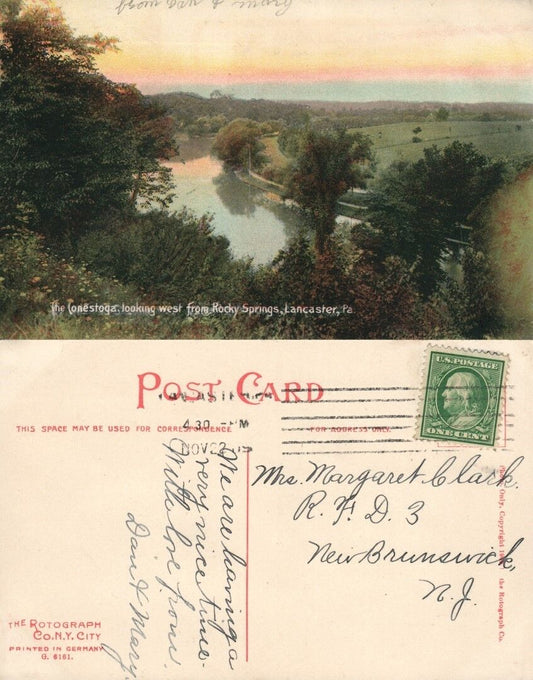 from Dan & Mary
The Conestoga, looking west from Rocky Springs, Lancaster, Pa.
POST CARD
U.S. POSTAGE
ONE CENT
430 PM
NOV 22
THIS SPACE MAY BE USED FOR CORRESPONDENCE
FOR ADDRESS ONLY.
We are having a
very nice time.
With love from
Dan & Mary.
Mrs. Margaret Clark.
R. F. D. 3
New Brunswick,
N. J.
Photo Only, Copyright
the Rotograph Co.
THE ROTOGRAPH
CO. N.Y. CITY
PRINTED IN GERMANY
G. 6161.